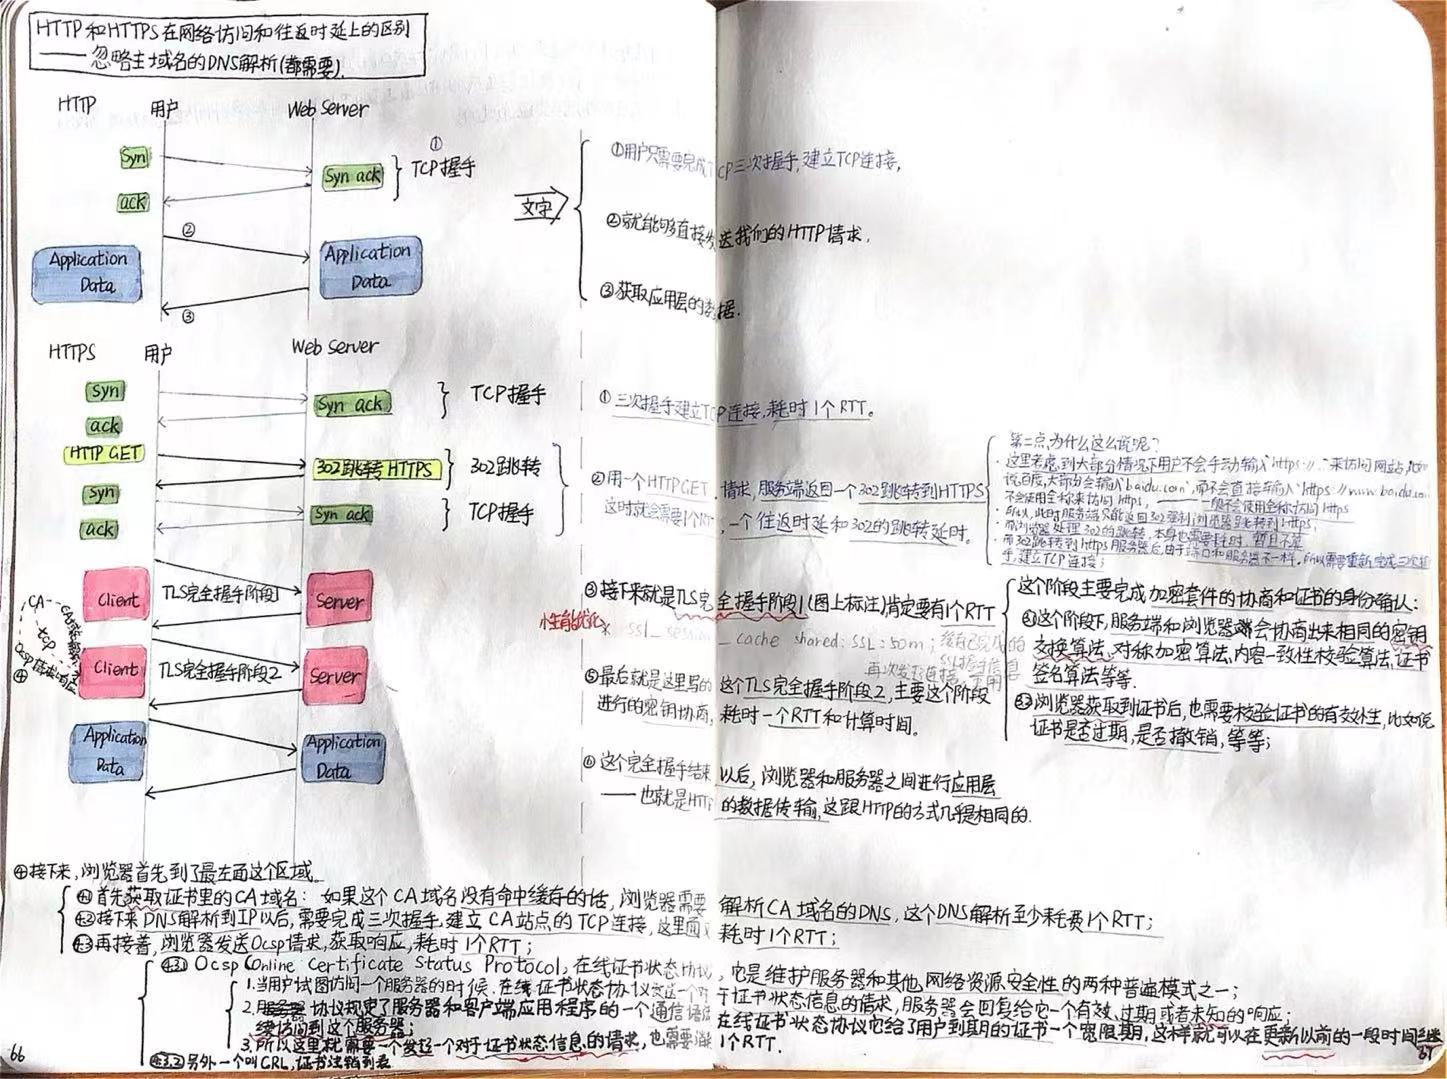 HTTP和HTTPS在网络访问和往返时延上的区别
—— 忽略主域名的DNS解析(都需要).
HTTP 用户 Web Server
Syn
Syn ack
ack
① TCP握手
②
Application Data
Application Data
③
文字
①用户只需要完成TCP三次握手,建立TCP连接,
②就能够直接发送我们的HTTP请求.
③获取应用层的数据.
HTTPS 用户 Web Server
Syn
Syn ack
TCP握手
ack
HTTP GET
302跳转HTTPS
302跳转
Syn
Syn ack
TCP握手
ack
Client
TLS完全握手阶段1
Server
CA
tcp
Ocsp请求响应
④
Client
TLS完全握手阶段2
Server
Application Data
Application Data
①三次握手建立TCP连接,耗时1个RTT。
②用一个HTTP GET 请求,服务端返回一个302跳转到HTTPS
这时就会需要1个RTT,一个往返时延和302的跳转延时。
第二点,为什么这么说呢?
·这里考虑,到大部分情况下用户不会手动输入"https://…"来访问网站,比如
说百度,大部分会输入"baidu.com",而不会直接输入"https://www.baidu.com
不会使用全称来访问https,一般不会使用全称访问https
·所以,此时服务端只能返回302强制浏览器跳转到https
·而浏览器处理302的跳转,本身也需要耗时,暂且不算
·而302跳转到https服务器后,由于端口和服务器不一样,所以需要重新完成三次握
手,建立TCP连接;
③接下来就是TLS完全握手阶段1(图上标注)肯定要有1个RTT
* ssl_session_cache shared:SSL:50m;缓存已完成的
SSL握手信息
再次发起连接
这个阶段主要完成加密套件的协商和证书的身份确认:
这个阶段下,服务端和浏览器端会协商出来相同的密钥
交换算法、对称加密算法、内容一致性校验算法、证书
签名算法等等.
浏览器获取到证书后,也需要校验证书的有效性,比如说
证书是否过期,是否撤销,等等;
⑤最后就是这里写的 这个TLS完全握手阶段2,主要这个阶段
进行的密钥协商, 耗时一个RTT和计算时间。
⑥这个完全握手结束以后,浏览器和服务器之间进行应用层
—— 也就是HTTP的数据传输,这跟HTTP的方式几乎是相同的.
④接下来,浏览器首先到了最左面这个区域.
首先获取证书里的CA域名: 如果这个CA域名没有命中缓存的话,浏览器需要 解析CA域名的DNS,这个DNS解析至少耗费1个RTT;
接下来DNS解析到IP以后,需要完成三次握手,建立CA站点的TCP连接,这里面又耗时1个RTT;
再接着,浏览器发送Ocsp请求,获取响应,耗时1个RTT;
Ocsp(Online Certificate Status Protocol,在线证书状态协议,它是维护服务器和其他网络资源安全性的两种普遍模式之一;
1.当用户试图访问一个服务器的时候,在线证书状态协议发送一个对于证书状态信息的请求,服务器会回复给它一个有效、过期或者未知的响应;
2. 协议规定了服务器和客户端应用程序的一个通信语法 在线证书状态协议它给了用户到期的证书一个宽限期,这样就可以在更新以前的一段时间继
续访问到这个服务器;
3.所以这里就需要一个发起一个对于证书状态信息的请求,也需要消耗1个RTT.
另外一个叫CRL,证书注销列表
66
67